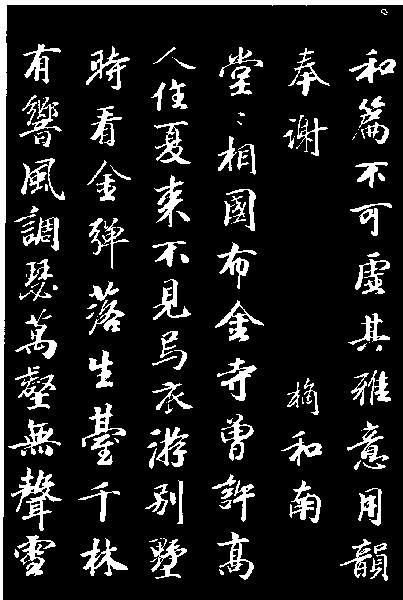 和篇不可虛其雅意用韻
奉謝 和南
堂〻相國布金寺曾許高
人住夏來不見烏衣游別墅
時看金彈落生臺千林
有響風調瑟萬壑無聲雪